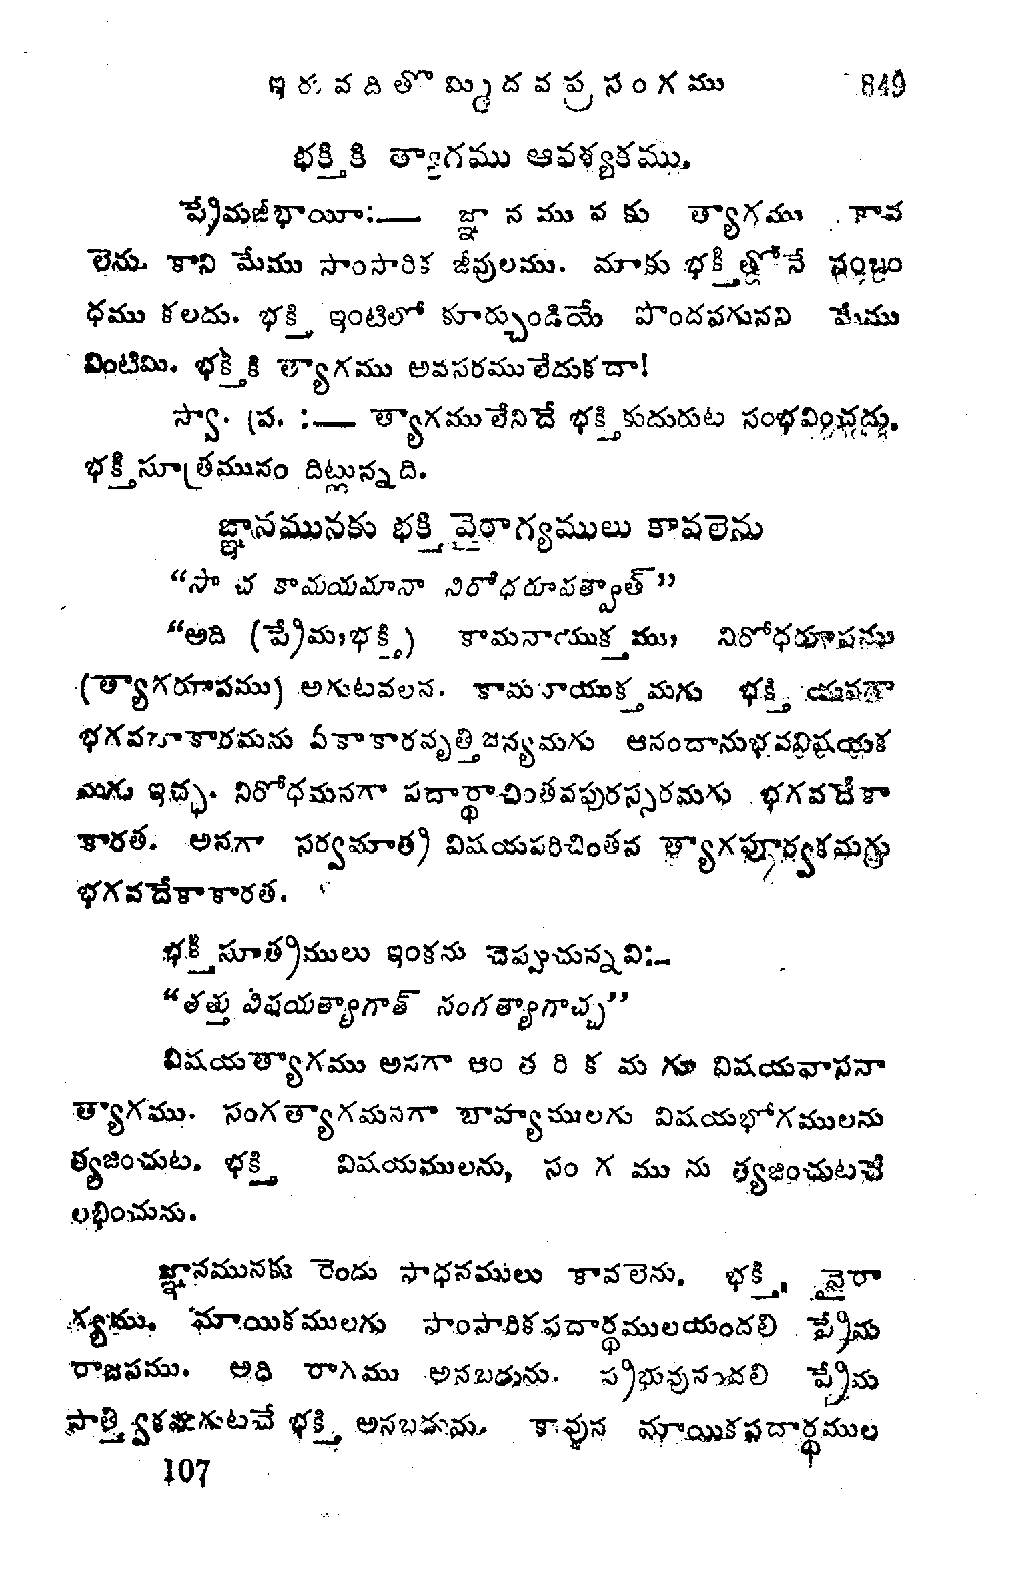 ఇరువదితొమ్మిదవ ప్రసంగము 849
భక్తికి త్యాగము ఆవశ్యకము.
ప్రేమజీభాయీ:— జ్ఞానమునకు త్యాగము కావ
లెను. కాని మేము సాంసారిక జీవులము. మాకు భక్తితోనే సంబం
ధము కలదు. భక్తి ఇంటిలో కూర్చుండియే పొందవగునని మేము
వింటిమి. భక్తికి త్యాగము అవసరములేదుకదా!
స్వా. ప్ర. :— త్యాగములేనిదే భక్తి కుదురుట సంభవించదు.
భక్తిసూత్రమునం దిట్లున్నది.
జ్ఞానమునకు భక్తి వైరాగ్యములు కావలెను
“సా చ కామయమానా నిరోధరూపత్వాత్”
“అది (ప్రేమ, భక్తి) కామనాయుక్తము, నిరోధరూపము
(త్యాగరూపము) అగుటవలన. కామనాయుక్తమగు భక్తి యనగా
భగవదాకారమను ఏకాకారవృత్తి జన్యమగు ఆనందానుభవవిషయక
మగు ఇచ్ఛ. నిరోధమనగా పదార్థాచింతనపురస్సరమగు భగవదేకా
కారత. అనగా సర్వమాత్ర విషయపరిచింతన త్యాగపూర్వకమగు
భగవదేకాకారత.
భక్తిసూత్రములు ఇంకను చెప్పుచున్నవి:–
“తత్తు విషయత్యాగాత్ సంగత్యాగాచ్చ”
విషయత్యాగము అనగా ఆంతరికమగు విషయవాసనా
త్యాగము. సంగత్యాగమనగా బాహ్యములగు విషయభోగములను
త్యజించుట. భక్తి విషయములను, సంగమును త్యజించుటచే
లభించును.
జ్ఞానమునకు రెండు సాధనములు కావలెను. భక్తి, వైరా
గ్యము. మాయికములగు సాంసారికపదార్థములయందలి ప్రేమ
రాజసము. అది రాగము అనబడును. ప్రభువునందలి ప్రేమ
సాత్త్వికమగుటచే భక్తి అనబడును. కావున మాయికపదార్థముల
107